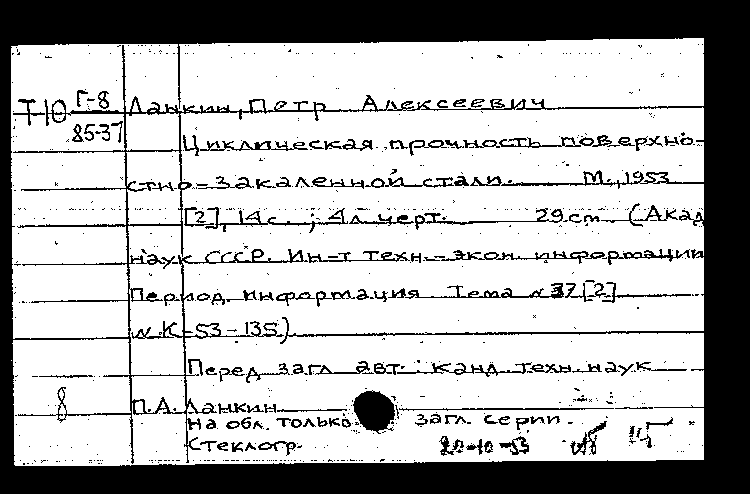 Т-10 Г-8 Ланкин, Петр Алексеевич
85-37
Циклическая прочность поверхно-
стно-закаленной стали. М., 1953
[2], 14 с. ; 4 л. черт. 29 cm (Акад
наук СССР. Ин-т техн.-экон. информации
Период. информация Тема № 37 [2]
№ К-53-135).
Перед загл. авт.: канд. техн. наук
8 П.А. Ланкин
На обл. только загл. серии.
Стеклогр. 20-10-53